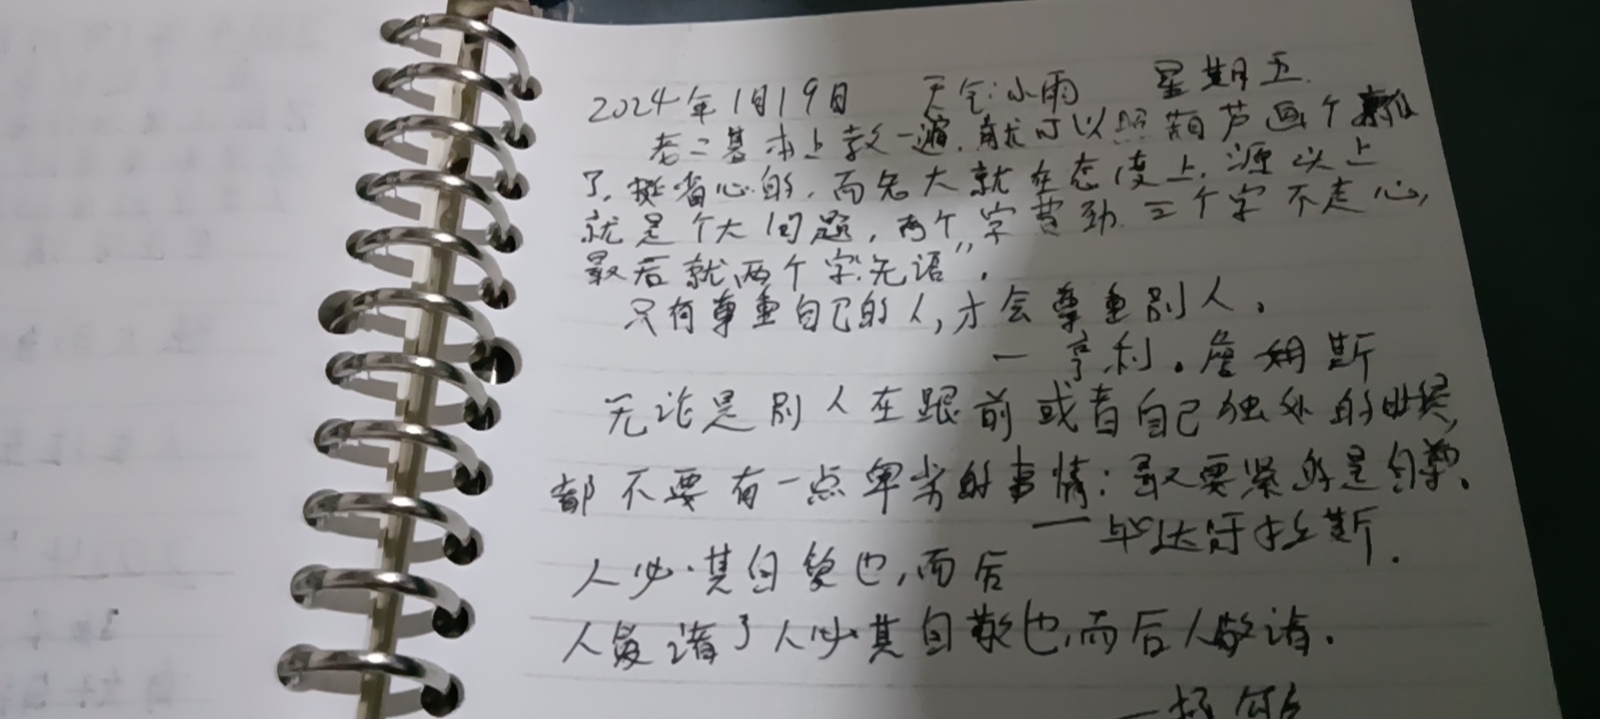 2024年1月19日 天气:小雨 星期五.
老二基本上教一遍,就可以照葫芦画个瓢
了,挺省心的,而老大就在态度上,源以上
就是个大问题,两个字费劲,三个字不走心,
最后就两个字"无语"。
只有尊重自己的人,才会尊重别人.
一亨利.詹姆斯
无论是别人在跟前或者自己独处的时候,
都不要有一点卑劣的事情:最要紧的是自尊.
一毕达哥拉斯.
人必.其自爱也,而后
人爱诸了人必其自敬也,而后人敬诸.
一扬